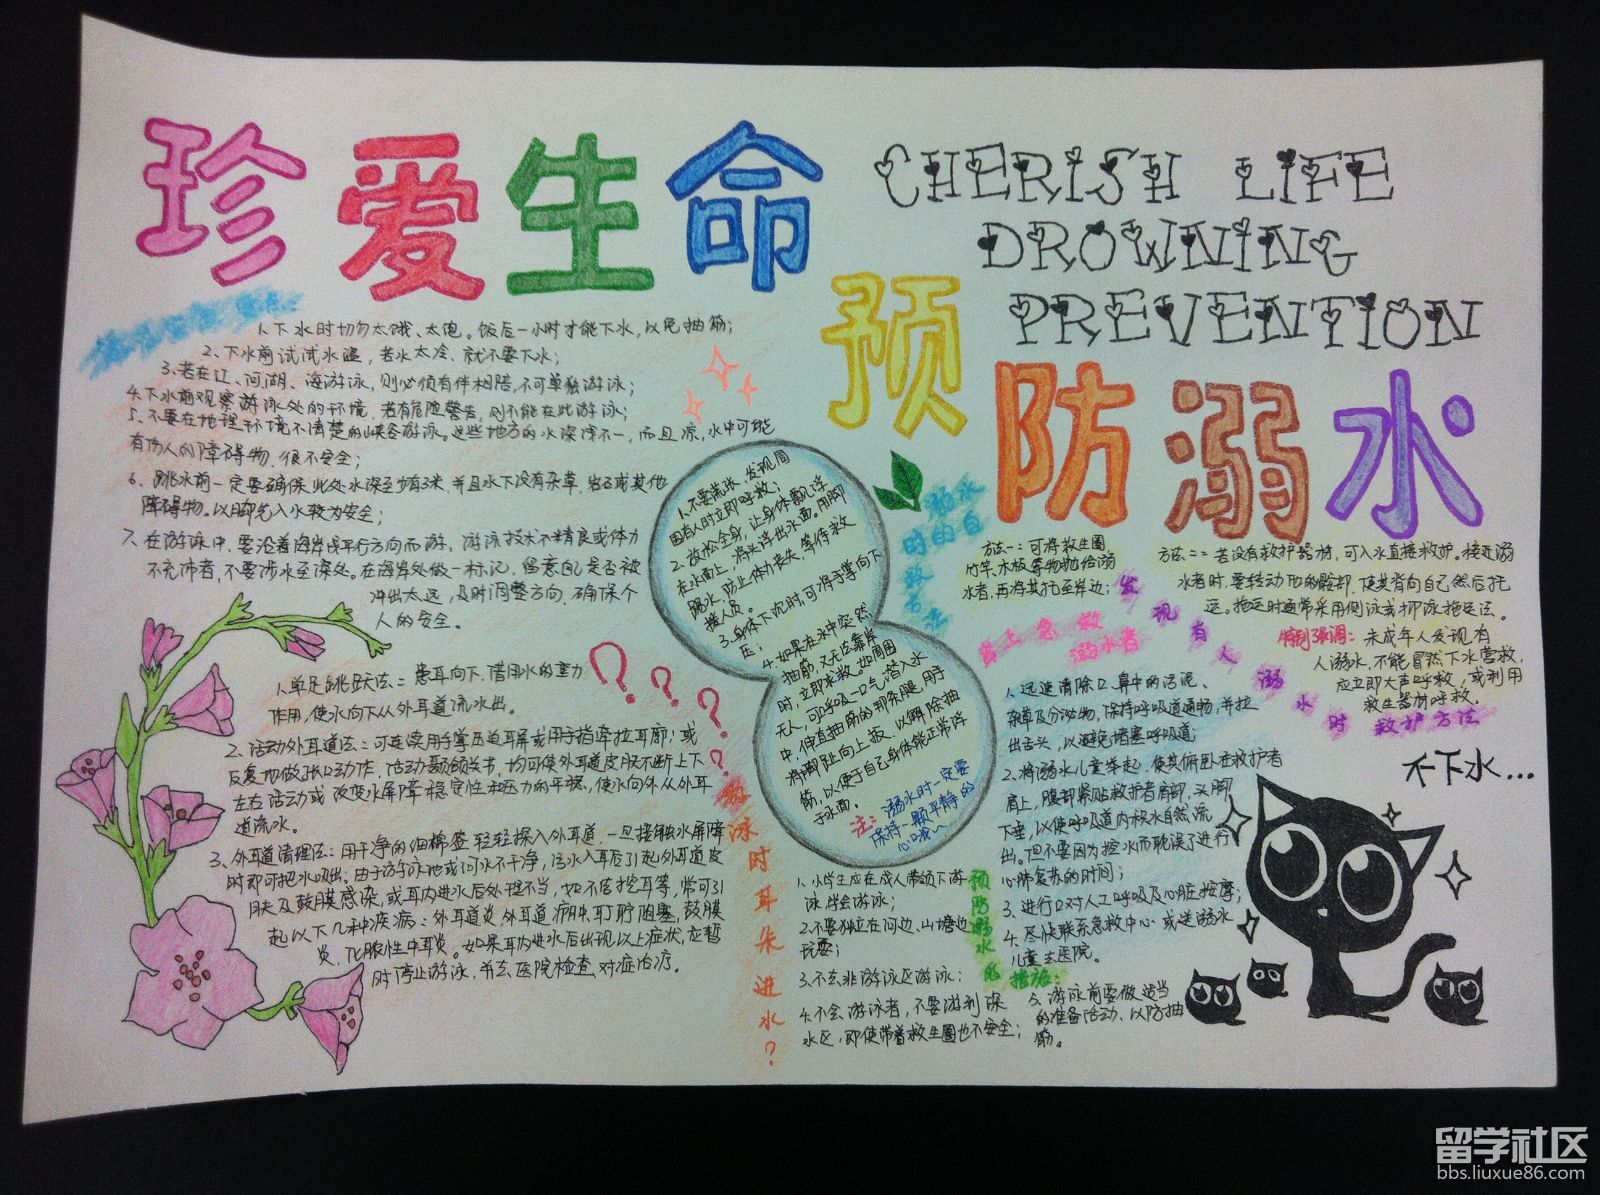 珍爱生命
CHERISH LIFE
DROWNING
PREVENTION
预防溺水
1.下水时切勿太饿、太饱。饭后一小时才能下水,以免抽筋;
2.下水前试试水温,若水太冷,就不要下水;
3.若在江、河、湖、海游泳,则必须有伴相陪,不可单独游泳;
4.下水前观察游泳处的环境,若有危险警告,则不能在此游泳;
5.不要在地理环境不清楚的峡谷游泳。这些地方的水深浅不一,而且凉,水中可能
有伤人的障碍物,很不安全;
6.跳水前一定要确保此处水深至少有3米,并且水下没有杂草、岩石或其他
障碍物。以脚先入水较为安全;
7.在游泳中,要沿着海岸线平行方向而游,游泳技术不精良或体力
不充沛者,不要涉水至深处。在海岸处做一标记,留意自己是否被
冲出太远,及时调整方向,确保个
人的安全。
1.单足跳跃法:患耳向下,借用水的重力
作用,使水向下从外耳道流水出。
2.活动外耳道法:可连续用手掌压迫耳屏或用手指牵拉耳廓;或
反复地做张口动作,活动颞颌关节,均可使外耳道皮肤不断上下
左右活动或改变水屏障稳定性和压力的平稳,使水向外从外耳
道流水。
3.外耳道清理法:用干净的细棉签轻轻探入外耳道,一旦接触水屏障
时即可把水吸出。由于游泳池或河水不干净,污水入耳后引起外耳道皮
肤及鼓膜感染,或耳内进水后处理不当,如不洁挖耳等,常可引
起以下几种疾病:外耳道炎、外耳道疖肿、耵聍阻塞、鼓膜
炎、化脓性中耳炎。如果耳内进水后出现以上症状,应暂
时停止游泳,并去医院检查,对症治疗。
???
泳时耳朵进水?
溺水
时的自
救方法
1.不要慌张,发现周
围有人时立即呼救;
2.放松全身,让身体飘浮
在水面上,将头浮出水面,用脚
踢水,防止体力丧失,等待救
援人员。
3.身体下沉时,可将手掌向下
压;
4.如果在水中突然
抽筋,又无法靠岸
时,立即求救。如周围
无人,可深吸一口气潜入水
中,伸直抽筋的那条腿,用手
将脚趾向上扳,以解除抽
筋,以便于自己身体能正常浮
于水面。
注:溺水时一定要
保持一颗平静的
心哦~
方法一:可将救生圈、
竹竿、木板等物抛给溺
水者,再将其拖至岸边;
方法二:若没有救护器材,可入水直接救护。接近溺
水者时,要转动他的髋部,使其背向自己然后拖
运。拖运时通常采用侧泳或仰泳拖运法。
特别强调:未成年人发现有
人溺水,不能冒然下水营救,
应立即大声呼救,或利用
救生器材呼救。
发现有人溺水时救护方法
岸上急救
溺水者
1.迅速清除口、鼻中的污泥、
杂草及分泌物,保持呼吸道通畅,并拉
出舌头,以避免堵塞呼吸道
2.将溺水儿童举起,使其俯卧在救护者
肩上,腹部紧贴救护者肩部,头脚
下垂,以使呼吸道内积水自然流
出。但不要因为控水而耽误了进行
心肺复苏的时间;
3.进行口对人工呼吸及心脏按摩;
4.尽快联系急救中心或送溺水
儿童去医院。
预防溺水的措施:
1.小学生应在成人带领下游
泳,学会游泳;
2.不要独立在河边、山塘边
玩耍;
3.不去非游泳区游泳;
4.不会游泳者,不要游到深
水区,即使带着救生圈也不安全;
5.游泳前要做适当
的准备活动,以防抽
筋。
不下水...
留学社区
bbs.liuxue86.com